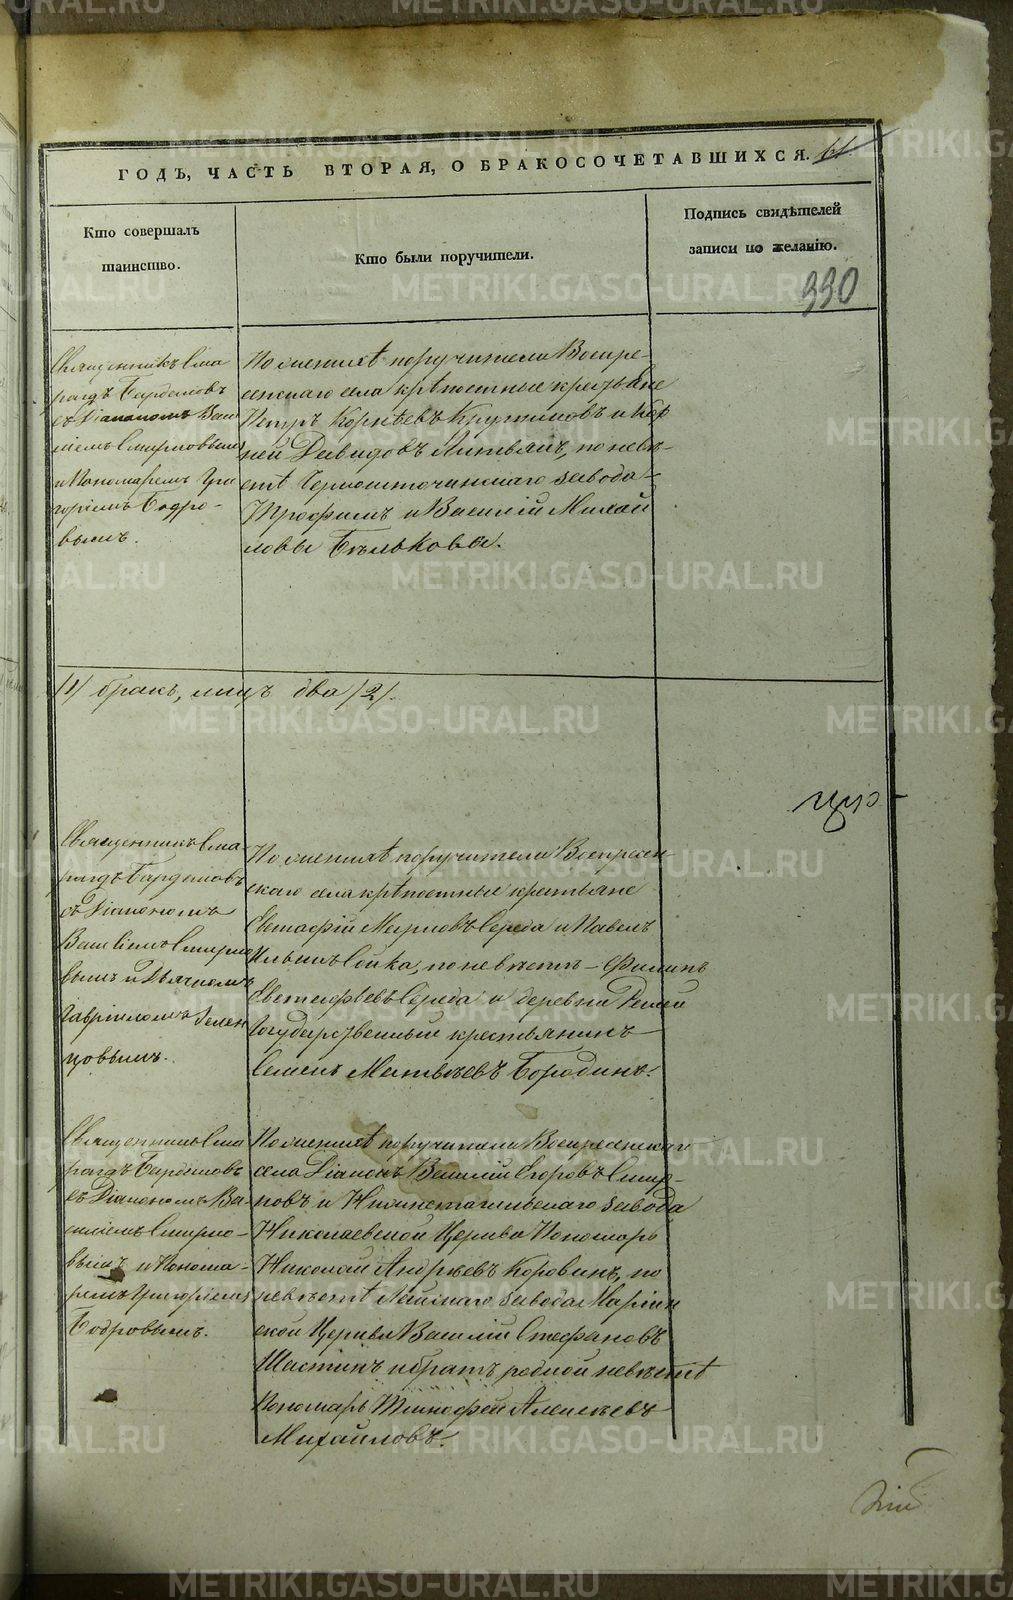 ГОДЪ, ЧАСТЬ ВТОРАЯ, О БРАКОСОЧЕТАВШИХСЯ. 61
Кто совершалъ
таинство.
Кто были поручители.
Подпись свидѣтелей
записи по желанію.
330
Священникъ Сма
рагдъ
съ Діакономъ Васи
ліемъ Смирновымъ
и Пономаремъ Гри
горіемъ Бодро-
вымъ.
По женихѣ поручители Воскре-
сенскаго села крѣпостные крестьяне
Петръ Корнѣевъ Кругликовъ и Кор
ней Давидовъ Литвякъ, по невѣ-
стѣ Черноисточинскаго завода-
Трофимъ и Василій Михай
ловы Бѣльковы.
/1/ бракъ, лицъ два /2/.
Священникъ Сма-
рагдъ
съ Діакономъ
Василіемъ Смирно
вымъ и Дьячкомъ
Гавріиломъ Зелен
цовымъ.
По женихѣ поручители Воскресен
скаго села крѣпостные крестьяне
Евстафій Середа и Павелъ
Ильинъ Сойка, по невѣстѣ - Филипъ
Евстафьевъ Середа и деревни
Государственный крестьянинъ
Семенъ Матвѣевъ Бородинъ.
Священникъ Сма
рагдъ
съ Діакономъ Ва-
силіемъ Смирно-
вымъ и Понома-
ремъ Григоріемъ
Бодровымъ.
По женихѣ поручители Воскресенскаго
села Діаконъ Василій Егоровъ Смир-
новъ и Нижнетагильскаго завода
Николаевской Церкви Пономарь
Николай Андрѣевъ Коровинъ, по
невѣстѣ Лайскаго завода Маріин
ской Церкви Василій Стефановъ
Шастинъ и братъ родной невѣстѣ
Пономарь Тимофей Алексѣевъ
Михайловъ.